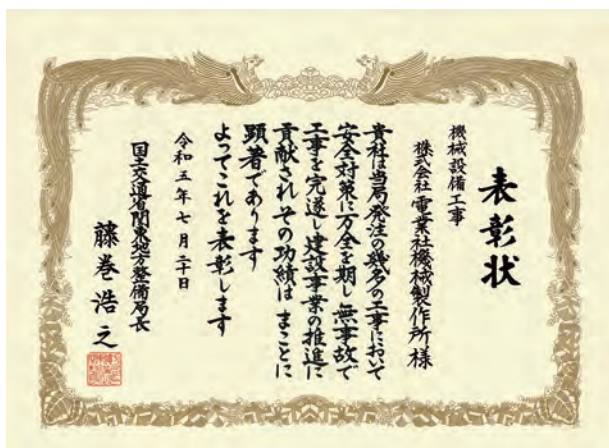 表彰状
機械設備工事
株式会社 電業社機械製作所 様
貴社は当局発注の幾多の工事において
安全対策に万全を期し無事故で
工事を完遂し建設事業の推進に
貢献されその功績は まことに
顕著であります
よってこれを表彰します
令和五年七月二十日
国土交通省関東地方整備局長
藤巻浩之